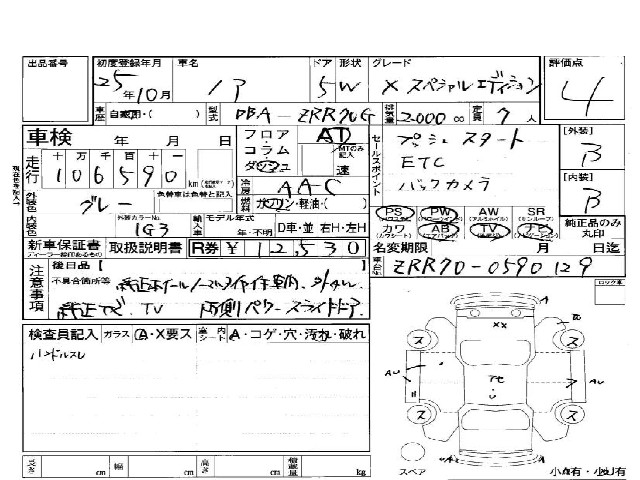 出品番号 初度登録年月 車名 ドア 形状 グレード 評価点
25年10月 ノア 5W X スペシャルエディション 4
車歴 自家用・( ) 型式 DBA-ZRR70G 排気量 2000 cc 定員 7人
車検 年 月 日 フロア・コラム・ダッシュ AT MTのみ記入 速
走行 十万千百十一 106590 km
セールスポイント プッシュスタート
ETC
バックカメラ
[外装] B
[内装] B
冷房 AAC
外装色 グレー 色替車は色替と記入 燃料 ガソリン・軽油・( )
内装色 外装カラーNo. 1G3 輸入車 モデル年式 年・不明 D車・並 右H・左H
PS PW AW SR
カワ AB TV ナビ
純正品のみ丸印
新車保証書 取扱説明書 R券 ¥12,530
名変期限 月 日迄
車台No. ZRR70-0590129
注意事項 後日品 [ ]
不具合箇所等
純正ナビ、TV 両側パワースライドドア
ロック車
検査員記入 ガラス A・X要ス 室内シート A・コゲ・穴・汚れ・破れ
ハンドルスレ
A
XX
B
ス ス
AU AU
ス ス
スペア
小A有・小U有
長さ cm 幅 cm 高さ cm 積載量 kg